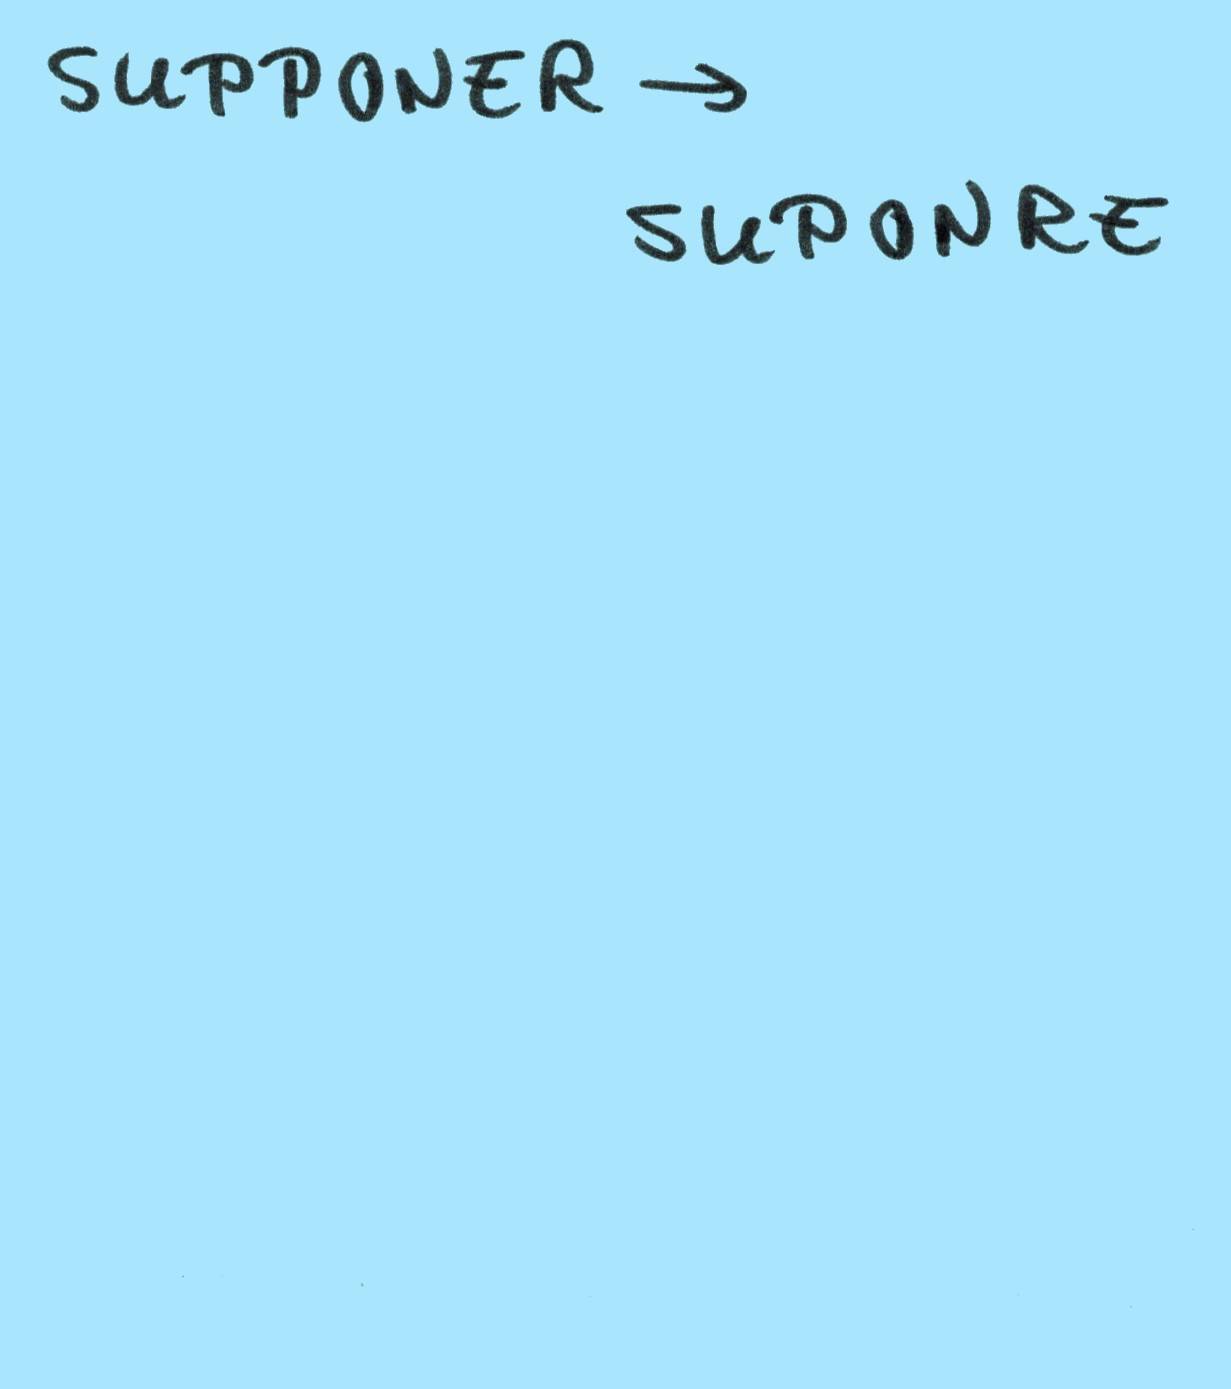 SUPPONER →
SUPONRE